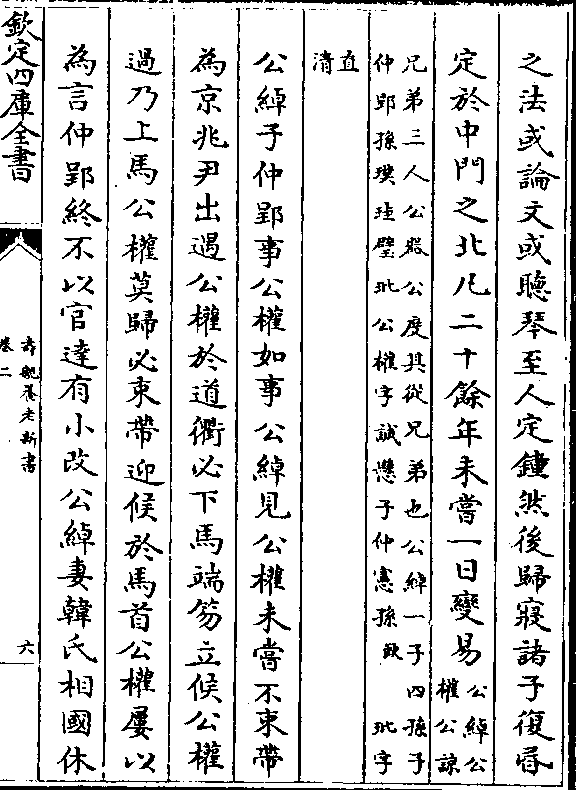 之法或論文或聽琴至人定鍾然後歸寢諸子復昏
定於中門之北凡二十餘年未嘗一日變易
公綽公
權公諒
兄弟三人公器公度其從兄弟也公綽一子四孫子
仲郢孫璞珪璧玭公權字誠懸子仲憲孫 玭字
直
清
公綽子仲郢事公權如事公綽見公權未嘗不束帶
為京兆尹出遇公權於道衢必下馬端笏立候公權
過乃上馬公權莫歸必束帶迎候於馬首公權屢以
為言仲郢終不以官達有小改公綽妻韓氏相國休
欽定四庫全書
壽親養老新書
卷二
六